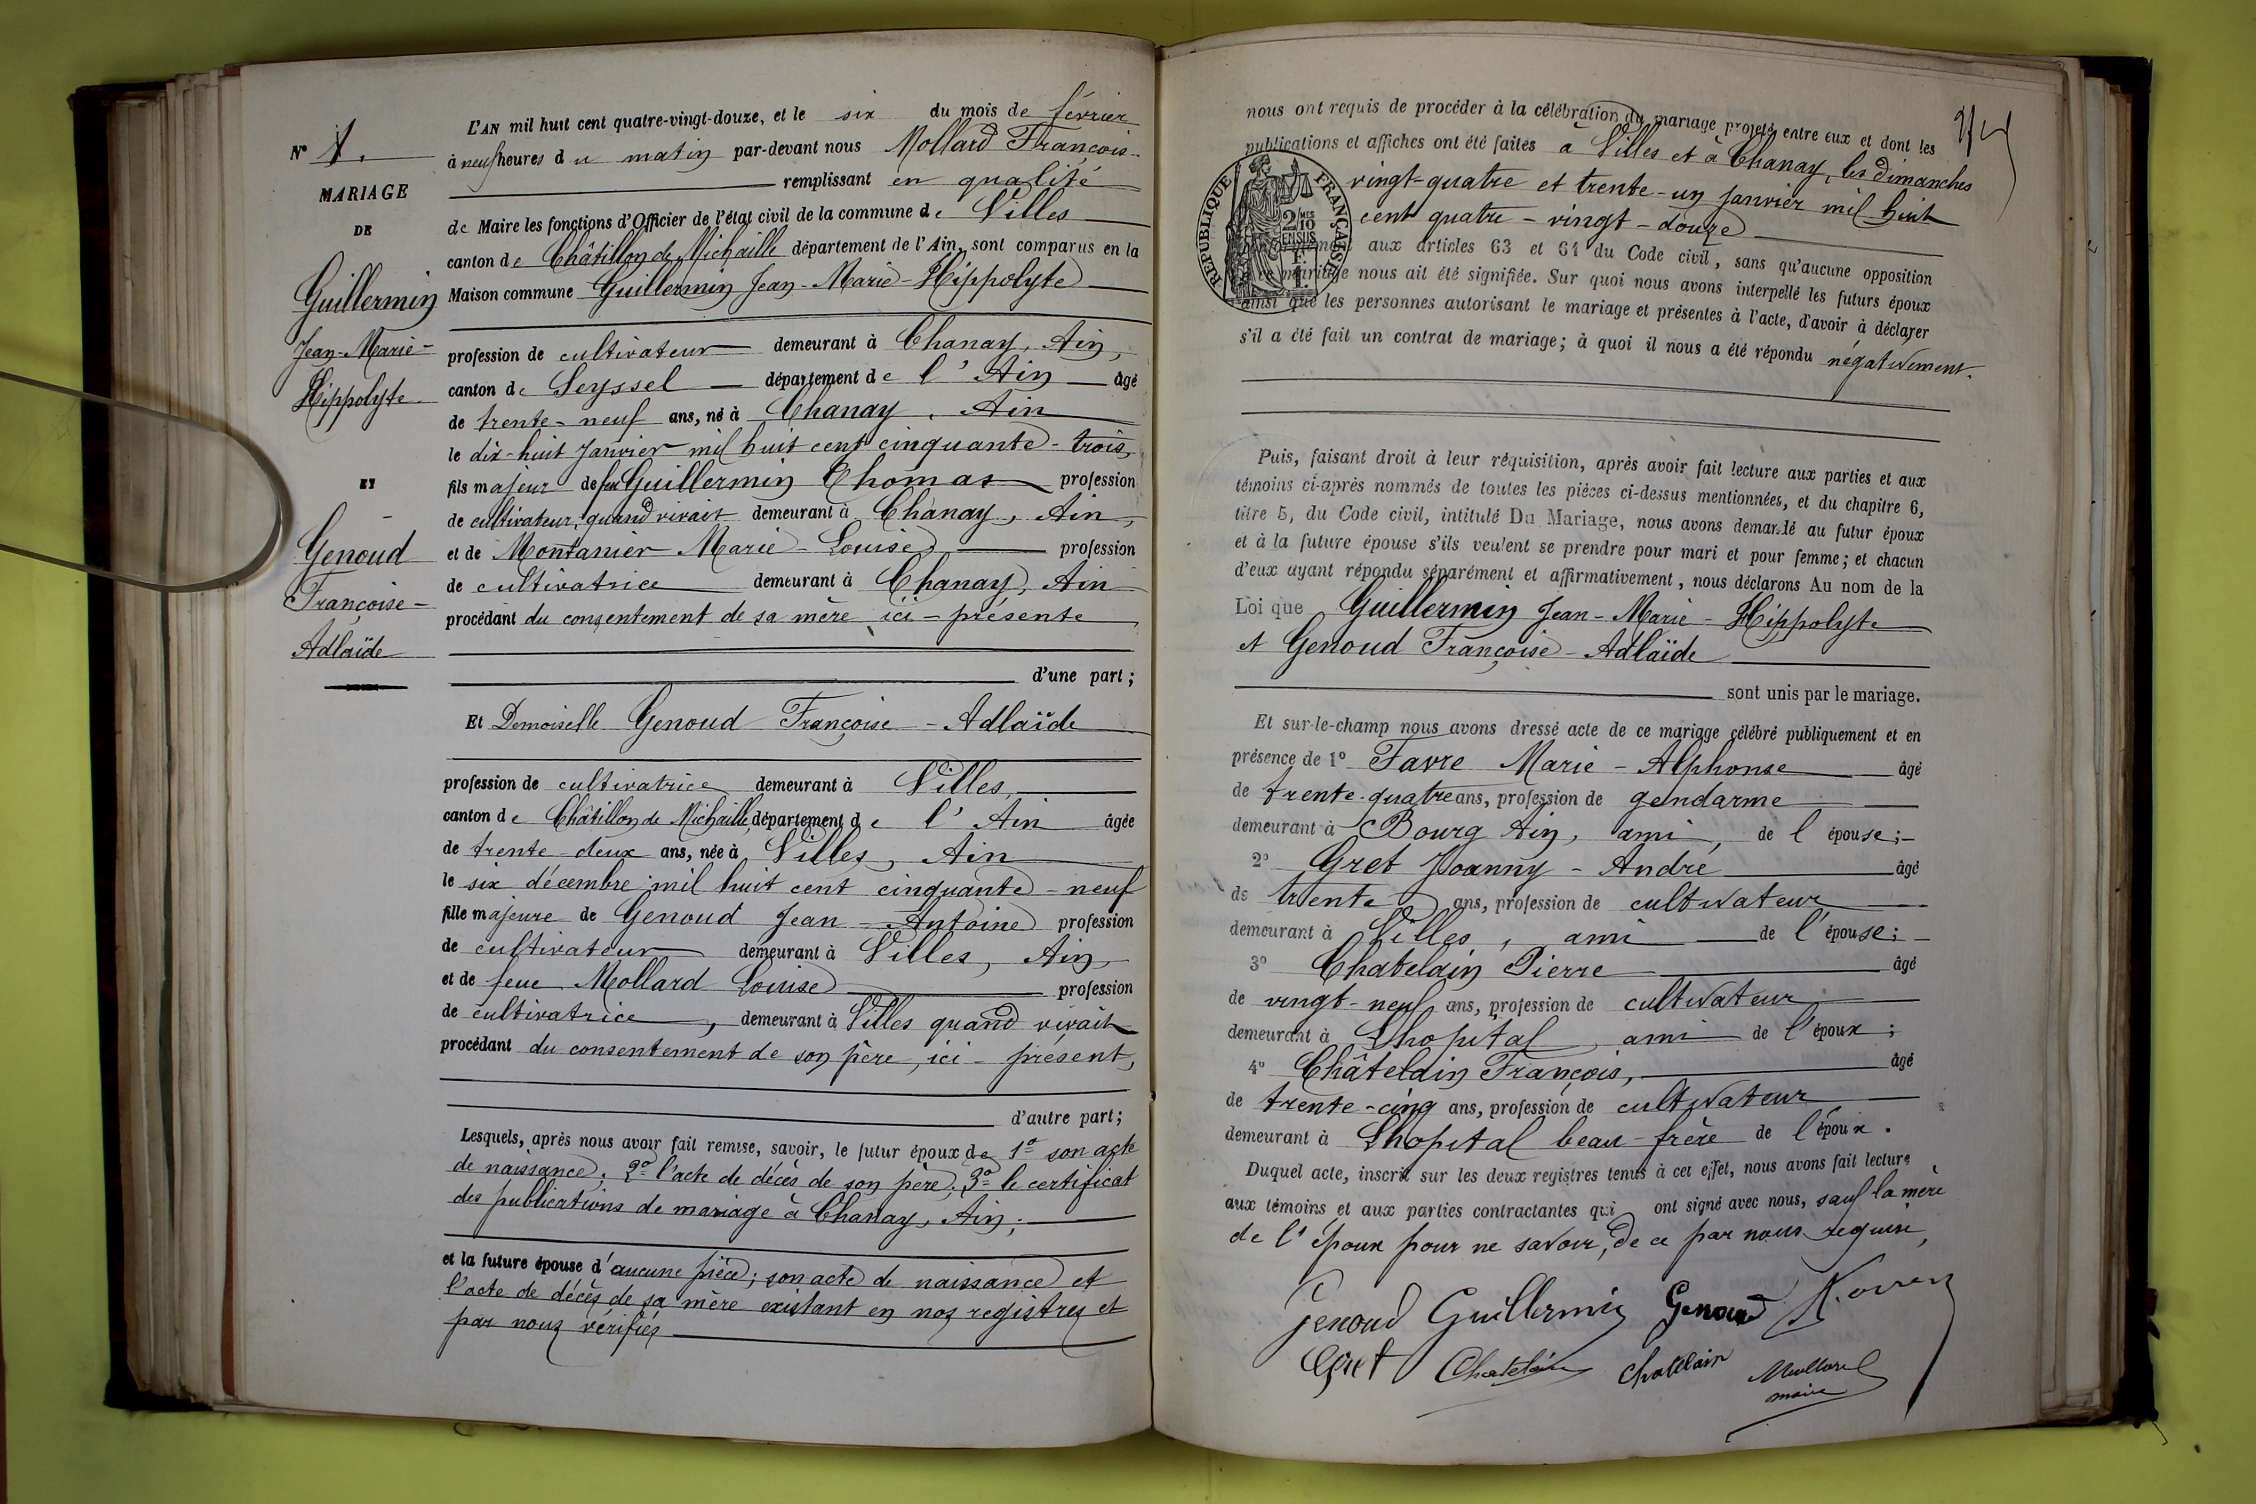 N° 1.
MARIAGE
DE
Guillermin
Jean-Marie-
Hippolyte
ET
Genoud
Françoise-
Adlaïde
L'AN mil huit cent quatre-vingt-douze, et le six du mois de février
à neuf heures du matin par-devant nous Mollard François
remplissant en qualité
de Maire les fonctions d'Officier de l'état civil de la commune de Villes
canton de Châtillon de Michaille département de l'Ain, sont comparus en la
Maison commune Guillermin Jean-Marie-Hippolyte
profession de cultivateur demeurant à Chanay, Ain,
canton de Seyssel département de l'Ain âgé
de trente-neuf ans, né à Chanay, Ain
le dix-huit janvier mil huit cent cinquante-trois,
fils majeur de feu Guillermin Thomas profession
de cultivateur, quand vivait demeurant à Chanay, Ain,
et de Montanier Marie-Louise profession
de cultivatrice demeurant à Chanay, Ain
procédant du consentement de sa mère ici-présente
d'une part;
Et Demoiselle Genoud Françoise-Adlaïde
profession de cultivatrice demeurant à Villes,
canton de Châtillon de Michaille, département de l'Ain âgée
de trente-deux ans, née à Villes, Ain
le six décembre mil huit cent cinquante-neuf
fille majeure de Genoud Jean-Antoine profession
de cultivateur demeurant à Villes, Ain,
et de feue Mollard Louise profession
de cultivatrice, demeurant à Villes quand vivait
procédant du consentement de son père, ici-présent,
d'autre part;
Lesquels, après nous avoir fait remise, savoir, le futur époux de 1° son acte
de naissance; 2° l'acte de décès de son père; 3° le certificat
des publications de mariage à Chanay, Ain;
et la future épouse d'aucune pièce; son acte de naissance et
l'acte de décès de sa mère existant en nos registres et
par nous vérifiés
nous ont requis de procéder à la célébration du mariage projeté entre eux et dont les
publications et affiches ont été faites à Villes et à Chanay, les dimanches
vingt-quatre et trente-un janvier mil huit
cent quatre-vingt-douze
RÉPUBLIQUE FRANÇAISE
2/10 MES
EN SUS
aux articles 63 et 64 du Code civil, sans qu'aucune opposition
mariage nous ait été signifiée. Sur quoi nous avons interpellé les futurs époux
ainsi que les personnes autorisant le mariage et présentes à l'acte, d'avoir à déclarer
s'il a été fait un contrat de mariage; à quoi il nous a été répondu négativement.
Puis, faisant droit à leur réquisition, après avoir fait lecture aux parties et aux
témoins ci-après nommés de toutes les pièces ci-dessus mentionnées, et du chapitre 6,
titre 5, du Code civil, intitulé Du Mariage, nous avons demandé au futur époux
et à la future épouse s'ils veulent se prendre pour mari et pour femme; et chacun
d'eux ayant répondu séparément et affirmativement, nous déclarons Au nom de la
Loi que Guillermin Jean-Marie-Hippolyte
et Genoud Françoise-Adlaïde
sont unis par le mariage.
Et sur-le-champ nous avons dressé acte de ce mariage célébré publiquement et en
présence de 1° Favre Marie-Alphonse âgé
de trente-quatre ans, profession de gendarme
demeurant à Bourg Ain, ami, de l'épouse;
2° Gret Joanny-André âgé
de trente ans, profession de cultivateur
demeurant à Villes, ami de l'épouse;
3° Chatelain Pierre âgé
de vingt-neuf ans, profession de cultivateur
demeurant à Lhopital ami de l'époux;
4° Châtelain François, âgé
de trente-cinq ans, profession de cultivateur
demeurant à Lhopital beau-frère de l'époux.
Duquel acte, inscrit sur les deux registres tenus à cet effet, nous avons fait lecture
aux témoins et aux parties contractantes qui ont signé avec nous, sauf la mère
de l'époux pour ne savoir, de ce par nous requise,
Genoud Guillermin Genoud
Gret Chatelain Chatelain Mollard
maire